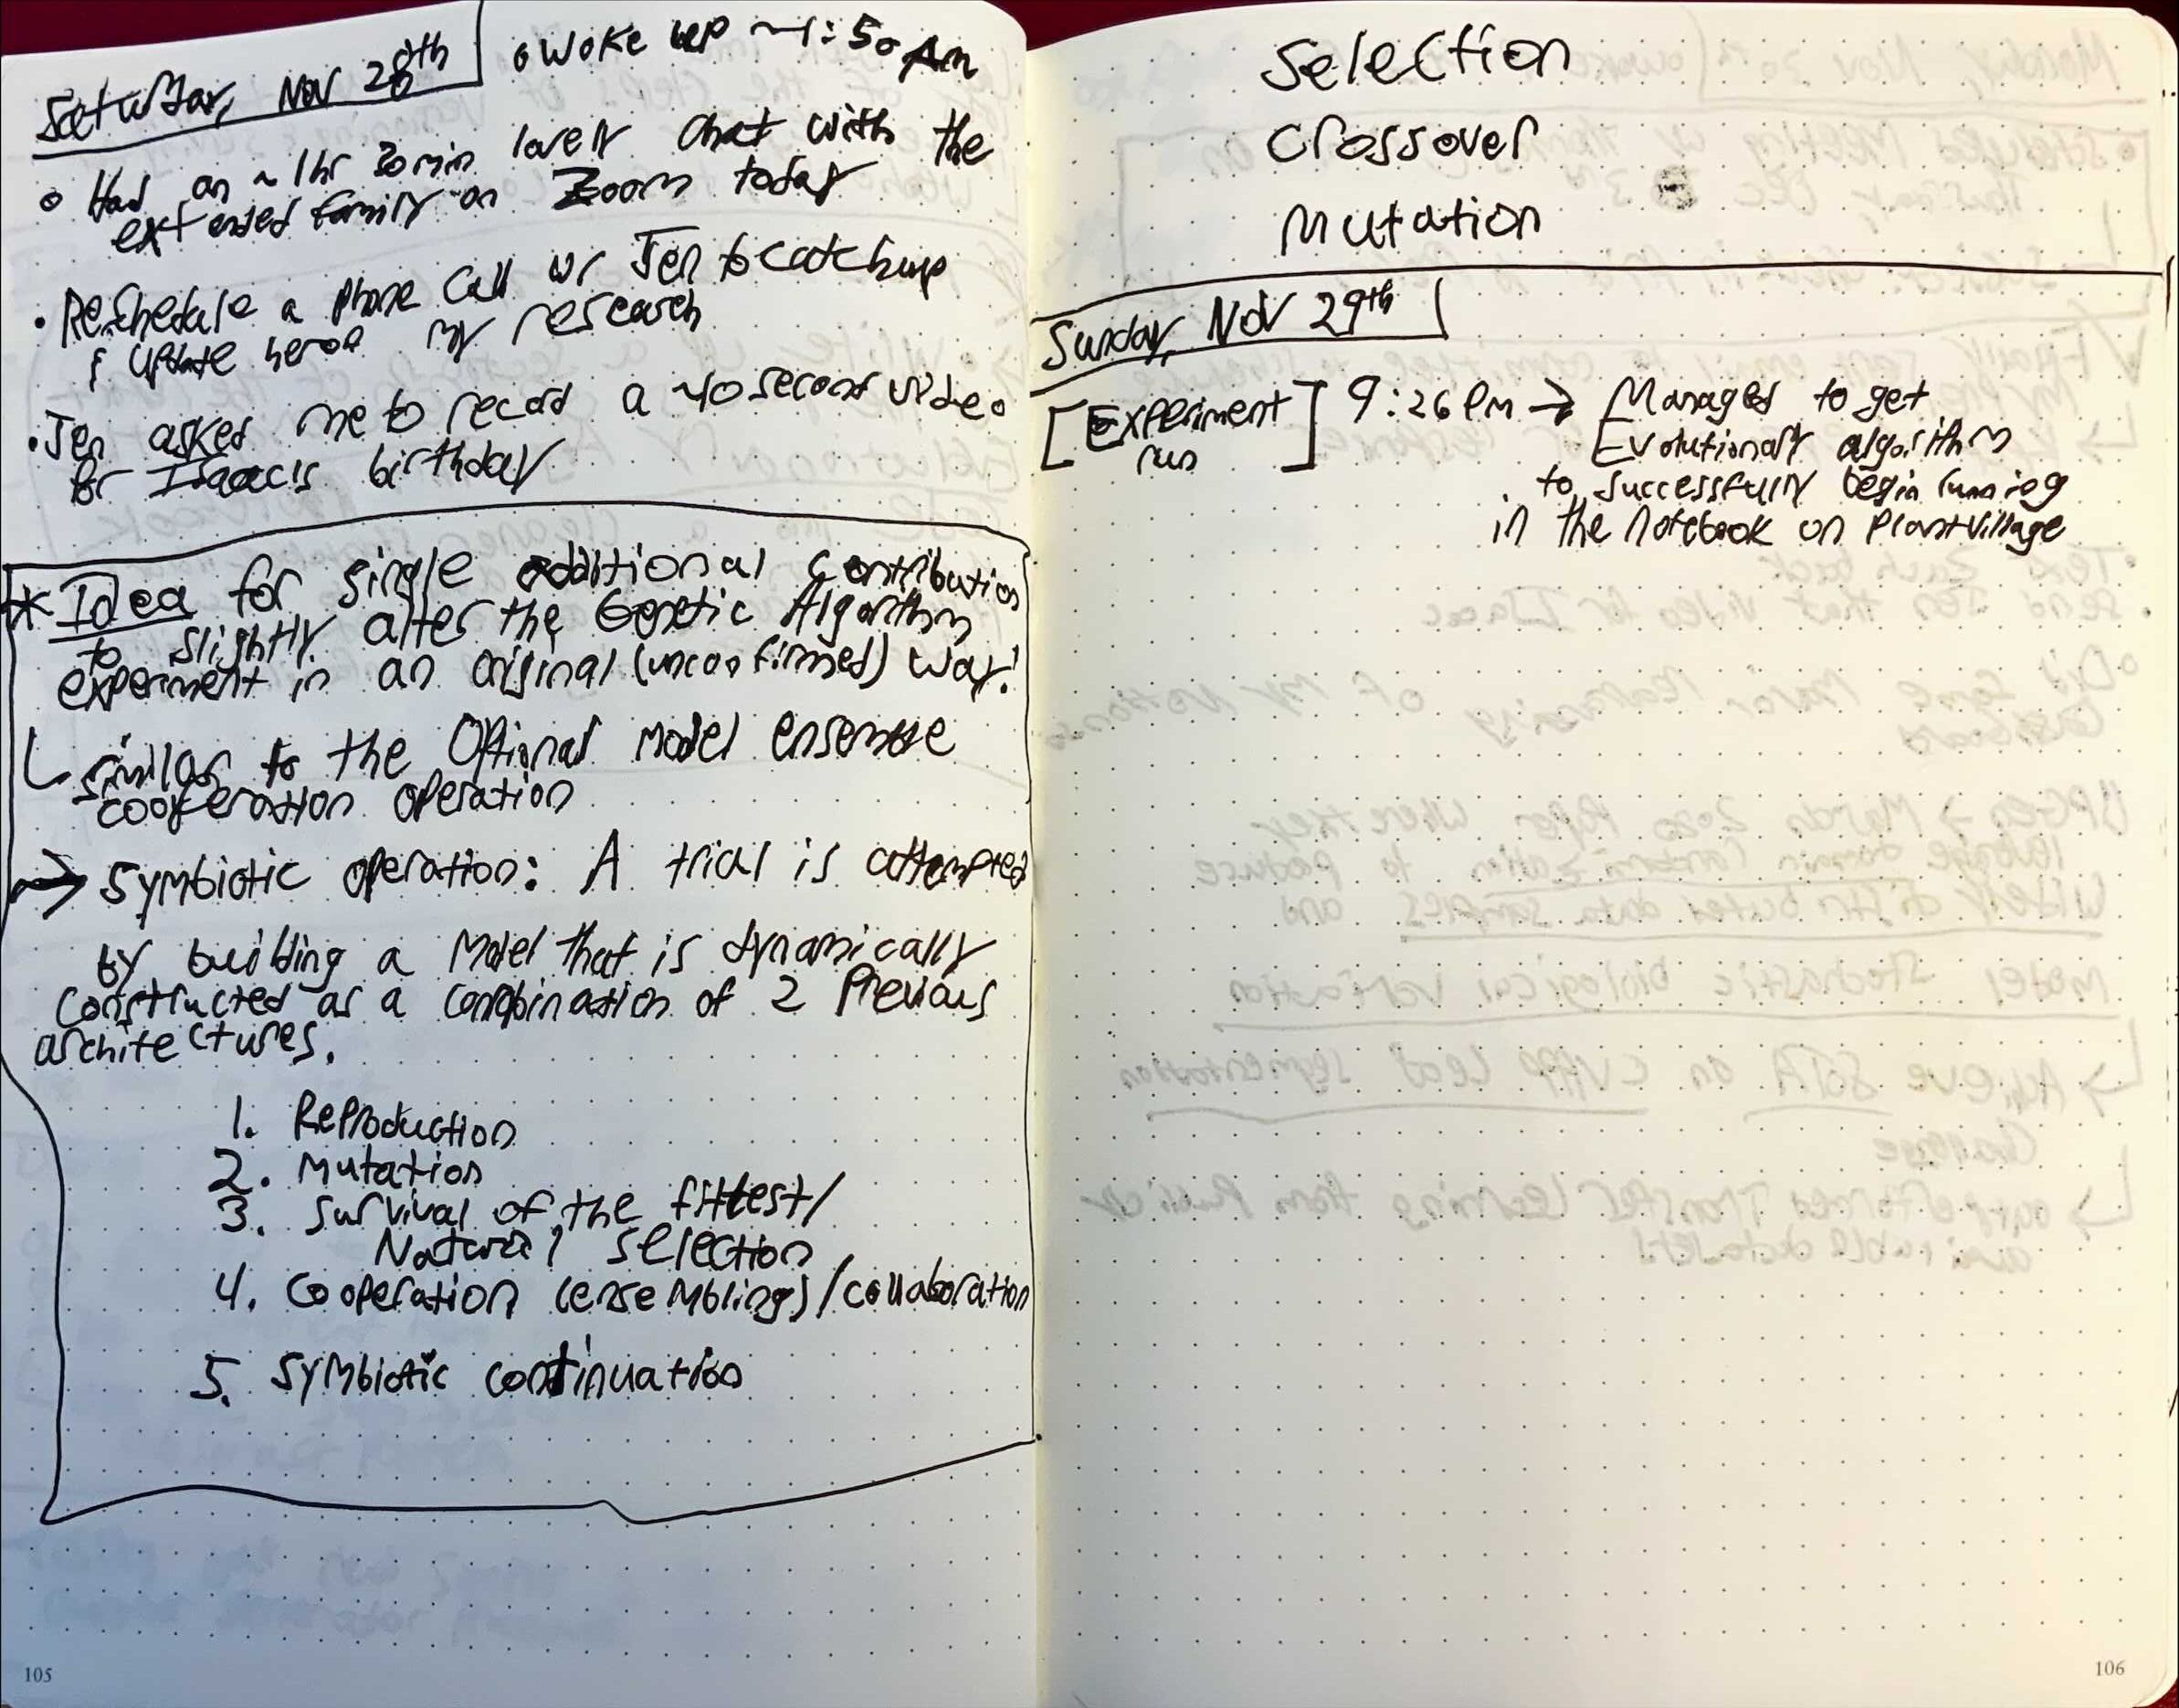 Saturday, Nov 28th
o Woke up ~1:50 Am
o Had an ~1hr 30min lovely chat with the
extended family on Zoom today
• Reschedule a phone call w/ Jen to catchup
& update her on my research
• Jen asked me to record a ~40 second video
for Isaac's birthday
* Idea for single additional contribution
to slightly alter the Genetic Algorithm
experiment in an original (unconfirmed) way!
similar to the Optional model ensemble
cooperation operation
→ Symbiotic operation: A trial is attempted
by building a Model that is dynamically
constructed as a combination of 2 Previous
architectures.
1. Reproduction
2. Mutation
3. Survival of the fittest/
Natural selection
4. Cooperation (ensembling)/collaboration
5. Symbiotic continuation
105
Selection
Crossover
Mutation
Sunday, Nov 29th
[Experiment run] 9:26 PM → Managed to get
Evolutionary algorithm
to successfully begin running
in the notebook on PlantVillage
106